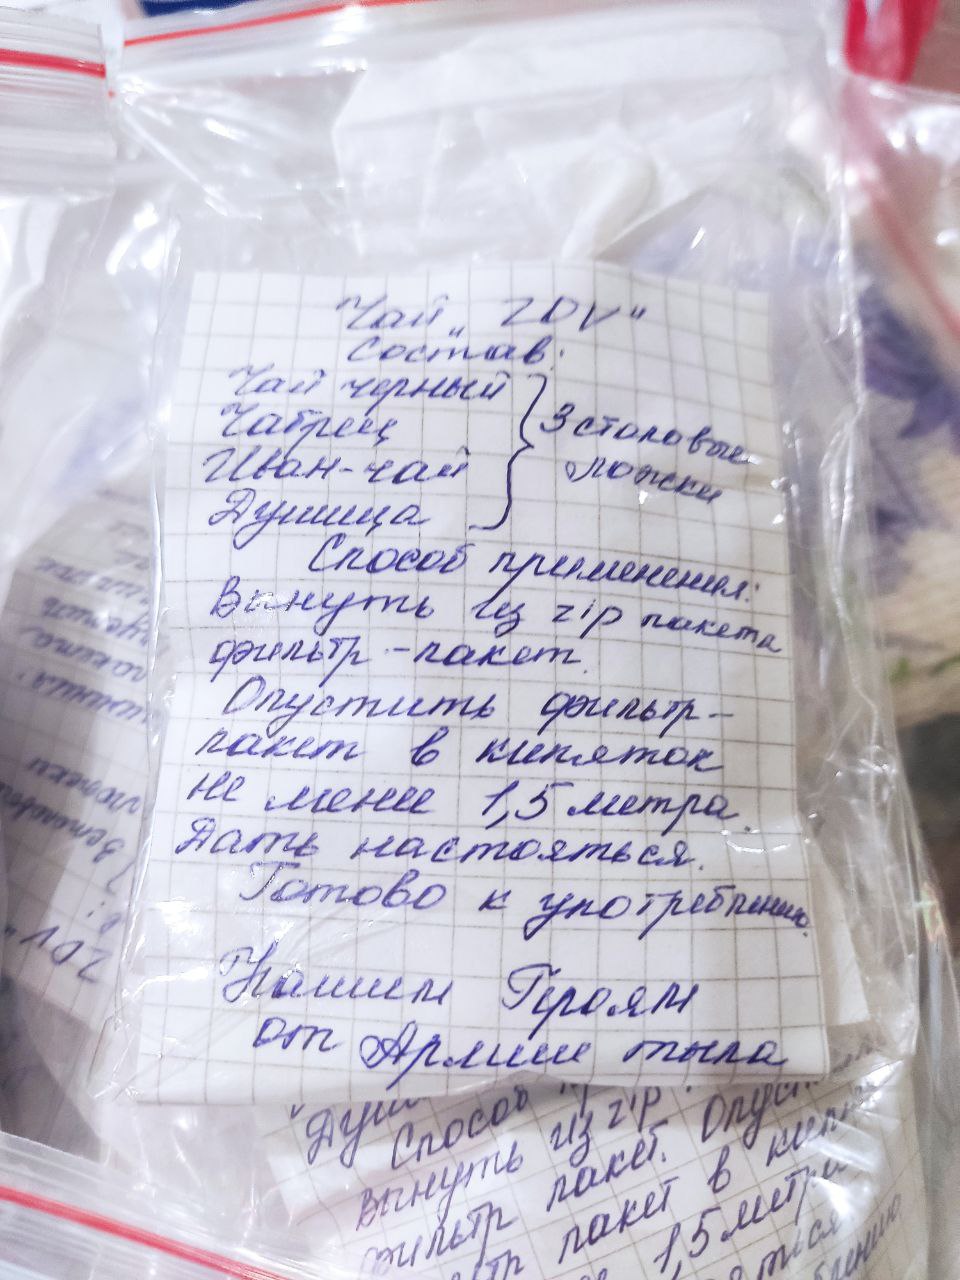 Чай „ZOV"
Состав:
Чай черный
Чабрец
Иван-чай
Душица
3 столовые
ложки
Способ применения:
Вынуть из zip пакета
фильтр-пакет.
Опустить фильтр-
пакет в кипяток
не менее 1,5 метра.
Дать настояться.
Готово к употреблению.
Нашим Героям
от Армии тыла
Способ
вынуть из zip
фильтр пакет.
пакет в
1,5 метра